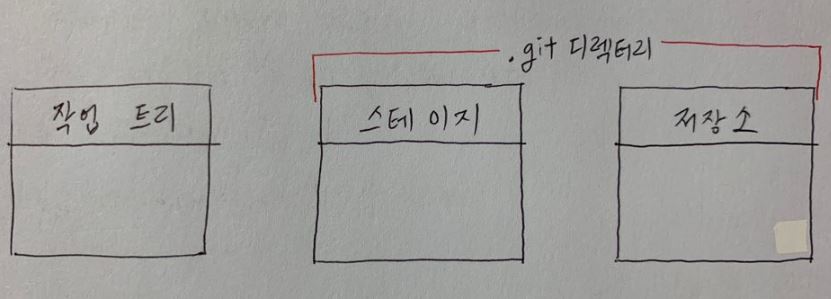 .git 디렉터리
작업 트리
스테이지
저장소